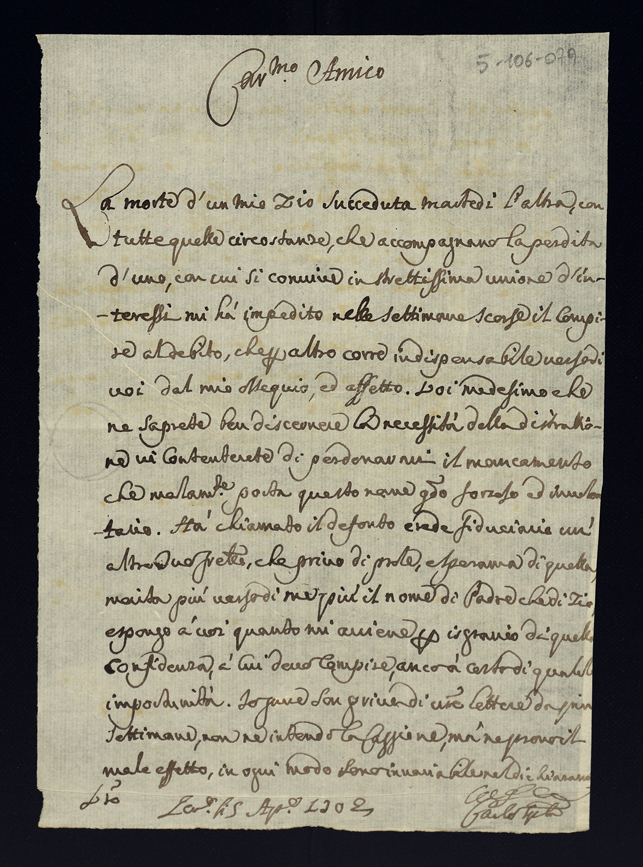 5-106-079
Car.mo Amico
La morte d'un mio Zio succeduta martedi l'altra, con
tutte quelle circostanze, che accompagnano la perdita
d'uno, con cui si convive in strettissima unione d'in-
-teressi mi há impedito nelle settimane scorse il Compi-
re al debito, che altro corre indispensabile verso di
voi dal mio ossequio, ed affetto. Voi medesimo che
ne saprete ben discernere la necessitá della distrattio-
ne vi Contenterete di perdonarmi il mancamento
che malam.te porta questo nome forzoso ed
-tario. Há chiamato il defonto erede fiduciario un'
altro suo che privo di prole, e speranza di quella,
merita piú verso di me piú il nome di Padre che di Zio
espongo á voi quanto mi avviene isgravio di quella
Confidenza, á cui devo Compire, ancorá costo di qualche
importunitá. Io pure son privo di lettere da piú
settimane, non ne intendo la Caggione, má ne provo il
male effetto, in ogni modo sono invariabile nel dichiararmi
Ap.e 1702
Carlo